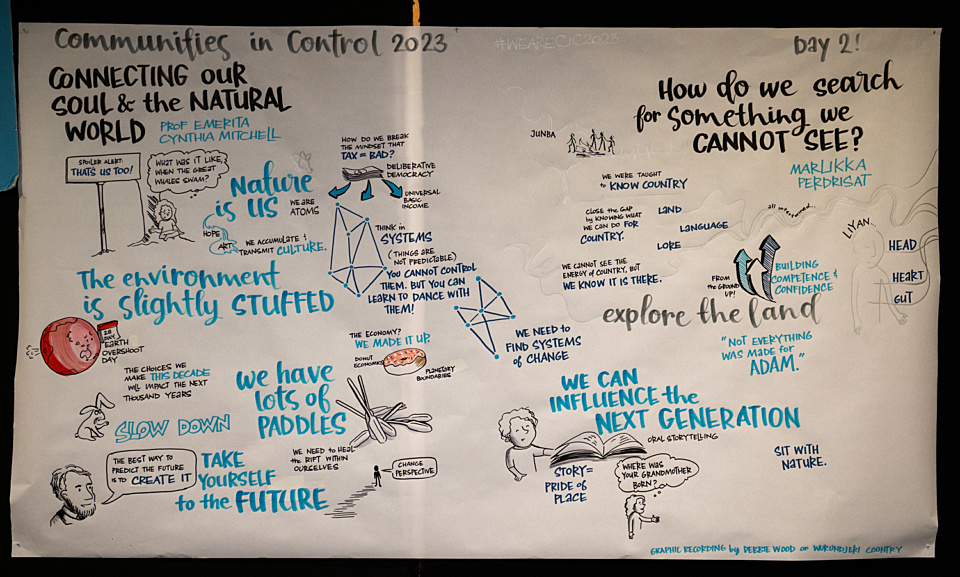 Communities in Control 2023
#WEARECIC2023
Day 2!
CONNECTING OUR
SOUL & the NATURAL
WORLD
PROF EMERITA
CYNTHIA MITCHELL
SPOILER ALERT:
THAT'S US TOO!
WHAT WAS IT LIKE,
WHEN THE GREAT
WHALES SWAM?
Nature
is US
WE ARE
ATOMS
HOPE
ART
WE ACCUMULATE &
TRANSMIT CULTURE.
HOW DO WE BREAK
THE MINDSET THAT
TAX = BAD?
DELIBERATIVE
DEMOCRACY
UNIVERSAL
BASIC
INCOME
THINK in
SYSTEMS
(THINGS ARE
NOT PREDICTABLE)
YOU CANNOT CONTROL
THEM. BUT YOU CAN
LEARN TO DANCE WITH
THEM!
The environment
is slightly STUFFED
EARTH
OVERSHOOT
DAY
THE CHOICES WE
MAKE THIS DECADE
WILL IMPACT THE NEXT
THOUSAND YEARS
SLOW DOWN
we have
lots of
PADDLES
THE ECONOMY?
WE MADE IT UP.
DONUT
ECONOMICS
PLANETARY
BOUNDARIES
WE NEED TO
FIND SYSTEMS
of CHANGE
THE BEST WAY TO
PREDICT THE FUTURE
IS to CREATE IT
TAKE
YOURSELF
to the FUTURE
WE NEED TO HEAL
the RIFT WITHIN
OURSELVES
CHANGE
PERSPECTIVE
How do we search
for something we
CANNOT SEE?
MARLIKKA
PERDRISAT
JUNBA
WE WERE TAUGHT
to KNOW COUNTRY
CLOSE the GAP
by KNOWING WHAT
WE CAN DO FOR
COUNTRY.
LAND
LANGUAGE
LORE
WE CANNOT SEE the
ENERGY of COUNTRY, BUT
WE KNOW IT IS THERE.
FROM
the GROUND
UP!
BUILDING
COMPETENCE &
CONFIDENCE
LIYAN
HEAD
HEART
GUT
explore the land
"NOT EVERYTHING
WAS MADE for
ADAM."
WE CAN
INFLUENCE the
NEXT GENERATION
ORAL STORYTELLING
STORY =
PRIDE of
PLACE
WHERE WAS
YOUR GRANDMOTHER
BORN?
SIT WITH
NATURE.
GRAPHIC RECORDING by DEBBIE WOOD on WURUNDJERI COUNTRY